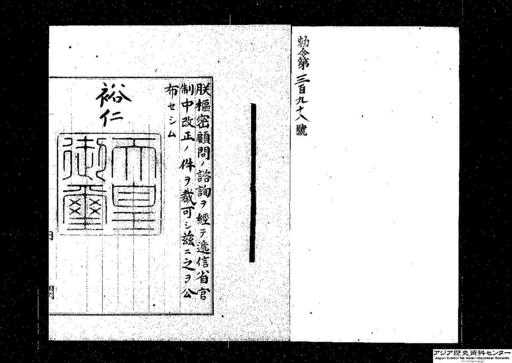 勅令第三百九十八號
朕樞密顧問ノ諮詢ヲ經テ遞信省官
制中改正ノ件ヲ裁可シ茲ニ之ヲ公
布セシム
裕仁
天皇
御璽
アジア歴史資料センター
Japan Center for Asian Historical Records